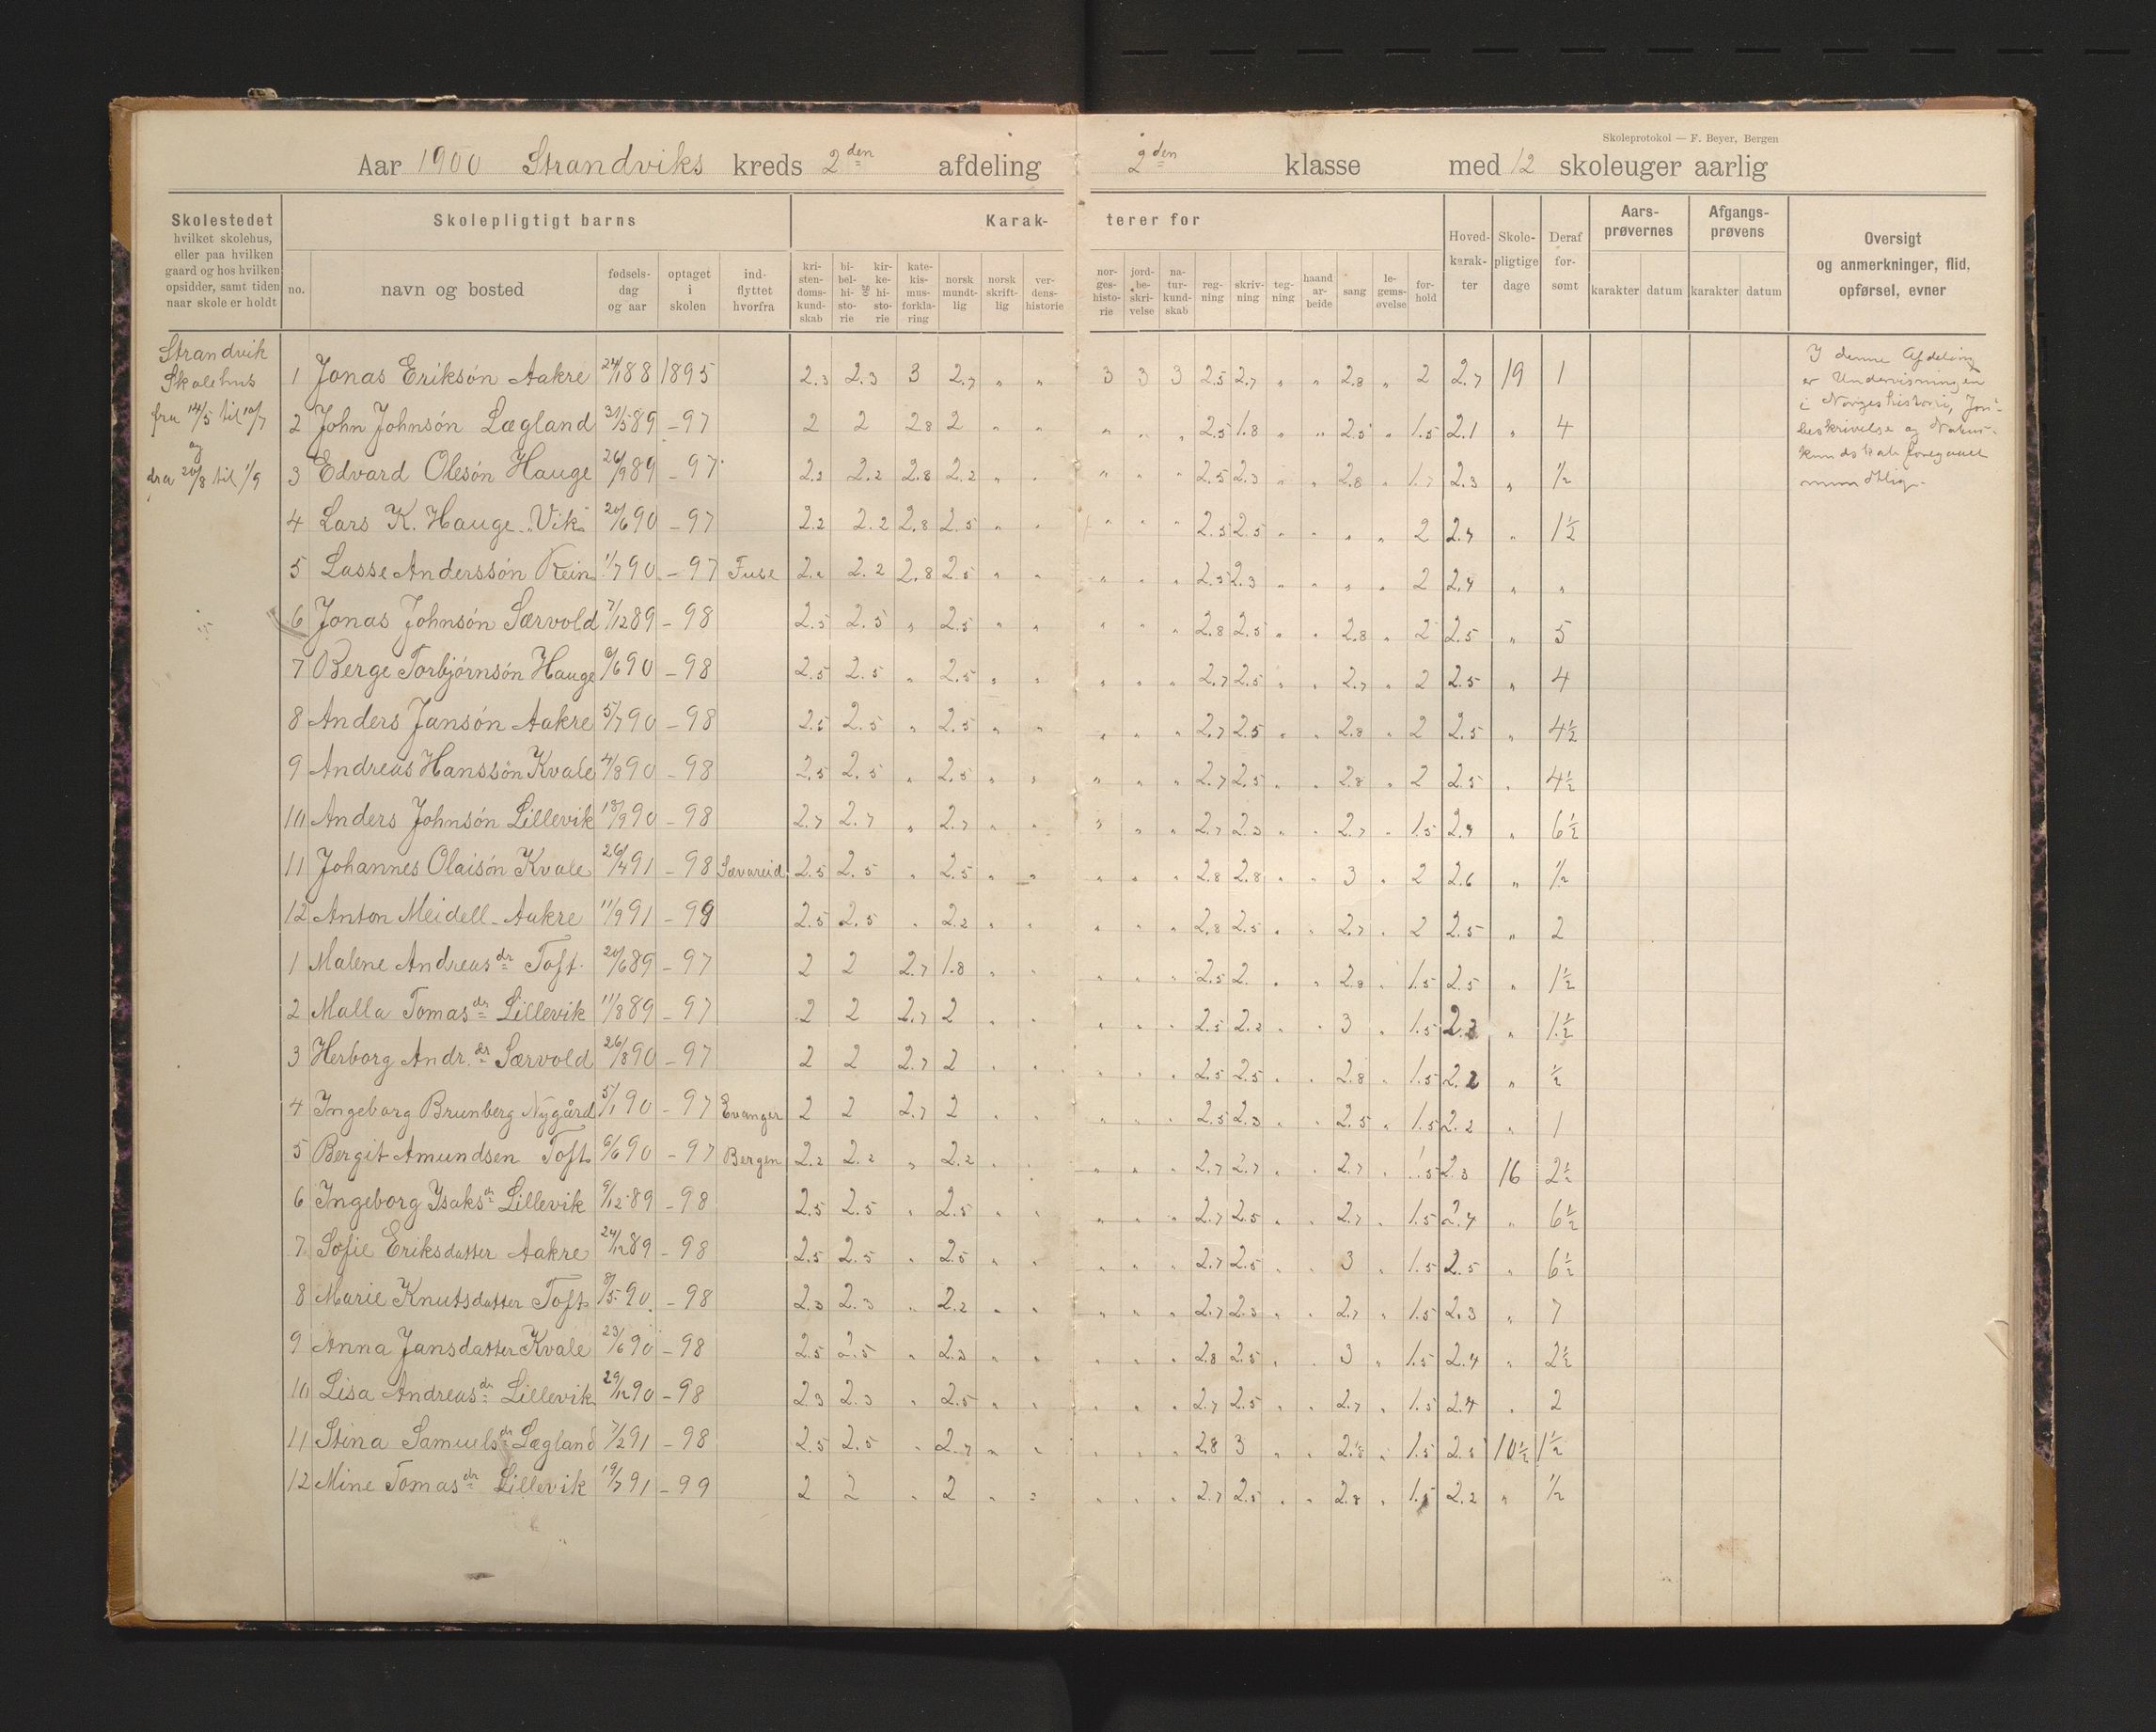 Skoleprotokol — F. Beyer, Bergen
Aar 1900 Strandviks kreds 2den afdeling 2den klasse med 12 skoleuger aarlig
Skolestedet hvilket skolehus, eller paa hvilken gaard og hos hvilken opsidder, samt tiden naar skole er holdt
Skolepligtigt barns
no. navn og bosted fødselsdag og aar optaget i skolen indflyttet hvorfra
Karakterer for
kristendomskundskab bibelhistorie og kirkehistorie katekismusforklaring norsk mundtlig norsk skriftlig verdenshistorie norgeshistorie jordbeskrivelse naturkundskab regning skrivning tegning haandarbeide sang legemsøvelse forhold
Hovedkarakter Skolepligtige dage Deraf forsømt
Aarsprøvernes karakter datum
Afgangsprøvens karakter datum
Oversigt og anmerkninger, flid, opførsel, evner
Strandvik
Skolehus
fra 14/5 til 10/7
og
fra 20/8 til 1/9
1 Jonas Eriksøn Aakre 24/1 88 1895 2.3 2.3 3 2.7 " " 3 3 3 2.5 2.7 " " 2.8 " 2 2.7 19 1
2 John Johnsøn Lægland 31/5 89 - 97 2 2 2.8 2 " " " " " 2.5 1.8 " " 2.5 " 1.5 2.1 " 4
3 Edvard Olesøn Hauge 26/9 89 - 97 2.2 2.2 2.8 2.2 " " " " " 2.5 2.3 " " 2.8 " 1.7 2.3 " 1/2
4 Lars K. Hauge "Vik" 20/6 90 - 97 2.2 2.2 2.8 2.5 " " " " " 2.5 2.5 " " " " 2 2.4 " 1 1/2
5 Lasse Anderssøn Rein 1/7 90 - 97 Fuse 2.2 2.2 2.8 2.5 " " " " " 2.5 2.3 " " " " 2 2.4 " "
6 Jonas Johnsøn Særvold 7/12 89 - 98 2.5 2.5 " 2.5 " " " " " 2.8 2.5 " " 2.8 " 2 2.5 " 5
7 Berge Torbjørnsøn Hauge 6/6 90 - 98 2.5 2.5 " 2.5 " " " " " 2.7 2.5 " " 2.7 " 2 2.5 " 4
8 Anders Jansøn Aakre 5/7 90 - 98 2.5 2.5 " 2.5 " " " " " 2.7 2.5 " " 2.8 " 2 2.5 " 4 1/2
9 Andreas Hanssøn Kvale 4/8 90 - 98 2.5 2.5 " 2.5 " " " " " 2.7 2.5 " " 2.8 " 2 2.5 " 4 1/2
10 Anders Johnsøn Lillevik 18/9 90 - 98 2.7 2.7 " 2.7 " " " " " 2.7 2.3 " " 2.7 " 1.5 " 6 1/2
11 Johannes Olaisøn Kvale 26/4 91 - 98 Sævareid 2.5 2.5 " 2.5 " " " " " 2.8 2.8 " " 3 " 2 2.6 " 1/2
12 Anton Meidell - Aakre 11/9 91 - 99 2.5 2.5 " 2.2 " " " " " 2.8 2.5 " " 2.7 " 2 2.5 " 2
1 Malene Andreasdr Toft 20/6 89 - 97 2 2 2.7 1.8 " " " " " 2.5 2. " " 2.8 " 1.5 2.5 " 1 1/2
2 Malla Tomasdr Lillevik 11/8 89 - 97 2 2 2.7 2 " " " " " 2.5 2.2 " " 3 " 1.5 " 1 1/2
3 Herborg Andr.dr Særvold 26/8 90 - 97 2 2 2.7 2 " " " " " 2.5 2.5 " " 2.8 " 1.5 2.2 " 1/2
4 Ingeborg Brunberg Nygård 5/1 90 - 97 Evanger 2 2 2.7 2 " " " " " 2.5 2.3 " " 2.5 " 1.5 2.2 " 1
5 Bergit Amundsen Toft 6/6 90 - 97 Bergen 2.2 2.2 " 2.2 " " " " " 2.7 2.7 " " 2.7 " 1.5 2.3 16 2 1/2
6 Ingeborg Isaksdr Lillevik 9/12 89 - 98 2.5 2.5 " 2.5 " " " " " 2.7 2.5 " " 2.7 " 1.5 2.4 " 6 1/2
7 Sofie Eriksdatter Aakre 24/12 89 - 98 2.5 2.5 " 2.5 " " " " " 2.7 2.5 " " 3 " 1.5 2.5 " 6 1/2
8 Marie Knutsdatter Toft 8/5 90 - 98 2.3 2.3 " 2.2 " " " " " 2.7 2.3 " " 2.7 " 1.5 2.3 " 7
9 Anna Jansdatter Kvale 23/6 90 - 98 2.5 2.5 " 2.3 " " " " " 2.8 2.5 " " 3 " 1.5 2.4 " 2 1/2
10 Lisa Andreasdr Lillevik 29/12 90 - 98 2.3 2.3 " 2.5 " " " " " 2.7 2.5 " " 2.7 " 1.5 2.4 " 2
11 Stina Samuelsdr Lægland 7/2 91 - 98 2.5 2.5 " 2.7 " " " " " 2.8 3 " " 2.8 " 1.5 10 1/2 1 1/2
12 Mine Tomasdr Lillevik 19/7 91 - 99 2 2 " 2 " " " " " 2.7 2.5 " " 2.8 " 1.5 2.2 " 1/2
I denne Afdeling
er Undervisningen
i Norgeshistorie, Jord-
beskrivelse og Natur-
kundskab foregaaet
mundtlig.